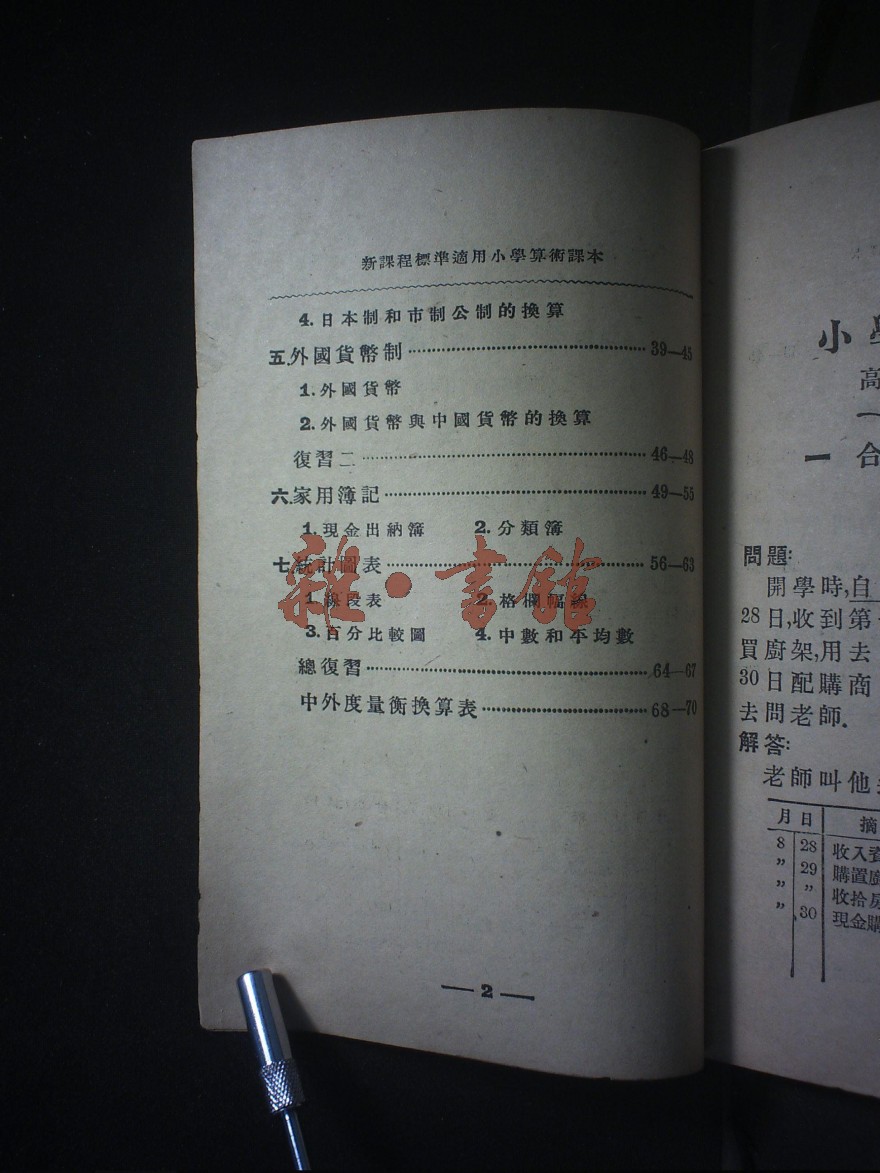 新課程標準適用小學算術課本
4. 日本制和市制公制的換算
五. 外國貨幣制 39—45
1. 外國貨幣
2. 外國貨幣與中國貨幣的換算
復習二 46—48
六. 家用簿記 49—55
1. 現金出納簿 2. 分類簿
七. 統計圖表 56—63
1. 線段表 2. 格欄幅線
3. 百分比較圖 4. 中數和平均數
總復習 64—67
中外度量衡換算表 68—70
— 2 —
雜·書館
小學
高
一
一 合
問題:
開學時,自
28日,收到第
買廚架,用去
30日配購商
去問老師.
解答:
老師叫他
月 日 摘
8 28 收入資
〃 29 購置廚
〃 〃 收拾房
〃 30 現金購